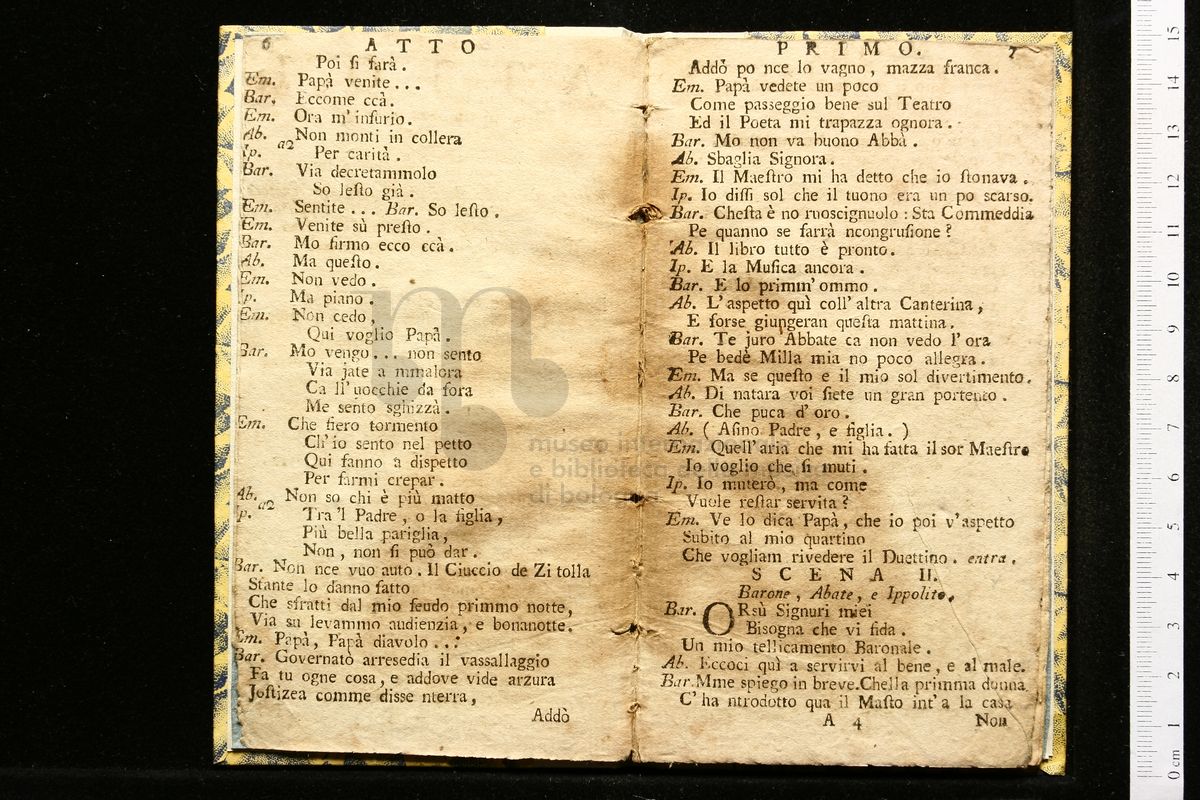 6 ATTO
Poi ſi farà.
Em. Papà venite...
Bar. Eccome ccà.
Em. Ora m'infurio.
Ab. Non monti in collera
Ip. a2 Per carità.
Bar. Via decretammolo
So leſto già.
Em. Sentite... Bar. So leſto.
Em. Venite sù preſto.
Bar. Mo firmo ecco ccà.
Ab. Ma queſto.
Em. Non vedo.
Ip. Ma piano.
Em. Non cedo,
Qui voglio Papà.
Bar. Mo vengo... non sento
Via jate a mmalora
Ca ll'uocchie da fora
Me sento sghizzà.
Em. Che fiero tormento
Ch'io sento nel petto
Qui fanno a diſpetto
Per farmi crepar.
Ab. Non so chi è più matto
Ip. a2 Tra'l Padre, o la figlia,
Più bella pariglia,
Non, non ſi può dar.
Bar. Non nce vuo auto. Il Ciuccio de Zi tolla
Stante lo danno fatto
Che sfratti dal mio feudo primmo notte,
Via su levammo audienzia, e bonanotte.
Em. Papà, Papà diavolo...
Bar. Governatò arresedia il vassallaggio
Fa tu ogne cosa, e addove vide arzura
Joſtizea comme disse nterra,
Addò
PRIMO. 7
Addò po nce lo vagno, mazza franca.
Em. Papà vedete un poco
Come passeggio bene sul Teatro
Ed il Poeta mi trapazza ognora.
Bar. Mo non va buono Abbà.
Ab. Sbaglia Signora.
Em. Il Maeſtro mi ha detto che io ſtonava.
Ip. Io diſſi sol che il tuono era un po scarso.
Bar. Cheſta è no ruoscignuolo: Sta Commeddia
Pe quanno se farrà ncongruſione?
Ab. Il libro tutto è pronto.
Ip. E la Muſica ancora.
Bar. E lo primm'ommo.
Ab. L'aspetto quì coll'altra Canterina,
E forse giungeran queſta mattina.
Bar. Te juro Abbate ca non vedo l'ora
Pe bedè Milla mia no poco allegra.
Em. Ma se queſto e il mio sol divertimento.
Ab. Di natara voi ſiete un gran portento.
Bar. Che puca d'oro.
Ab. (Aſino Padre, e figlia.)
Em. Quell'aria che mi ha fatta il sor Maeſtro
Io voglio che ſi muti.
Ip. Io muterò, ma come
Vuole reſtar servita?
Em. Ve lo dica Papà, che io poi v'aspetto
Subito al mio quartino
Che vogliam rivedere il Duettino. entra.
SCENA II.
Barone, Abate, e Ippolito.
Bar. ORsù Signuri miei
Bisogna che vi fida.
Un mio tellicamento Baronale.
Ab. Eccoci quì a servirvi al bene, e al male.
Bar. Mme spiego in breve. Chella primma donna
C'ha ntrodotto qua il Maſto int'a la casa
A 4 Non
museo internazionale
e biblioteca della musica
di bologna
0 cm 1 2 3 4 5 6 7 8 9 10 11 12 13 14 15